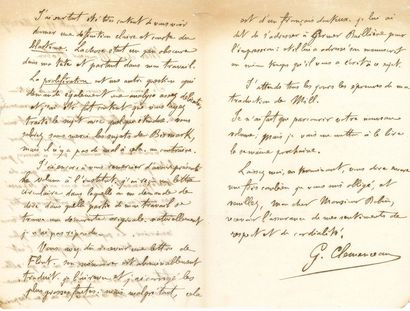 J'ai surtout été très content de vous voir
donner une définition claire et courte du
Blastème. La chose était un peu obscure
dans ma tête et partant dans mon travail.
La prolifération est une autre question qui
demande également une analyse assez
et j'ai été fort content que vous ayez
traité le sujet avec quelque étendue. vous
sans aussi les sujets de Bismark,
mais il n'y a pas de mal à cela, au contraire.
J'ai
un volume à l'Institut, j'ai reçu une lettre
circulaire dans laquelle on me demande de
dire dans quelle partie de mon travail se
trouve ma découverte originale. naturellement
je n'ai pas répondu.
Vous avez dû recevoir une lettre de
Flint. son mémoire est abominablement
traduit. je l'ai revu et j'ai corrigé les
plus grosses fautes: mais malgré tout, cela
est d'un français douteux. je lui ai
dit de s'adresser à Germer Baillière pour
l'impression: et il lui a adressé son manuscrit
en même temps qu'il vous a écrit à ce sujet.
J'attends tous les jours les épreuves de ma
traduction de Mill.
Je n'ai fait que parcourir votre nouveau
volume, mais je vais me mettre à le lire
la semaine prochaine.
Laissez moi, en terminant, vous dire encore
une fois combien je vous suis obligé, et
veuillez, mon cher Monsieur Robin,
recevoir l'assurance de mes sentiments de
respect et de cordialité.
G. Clemenceau